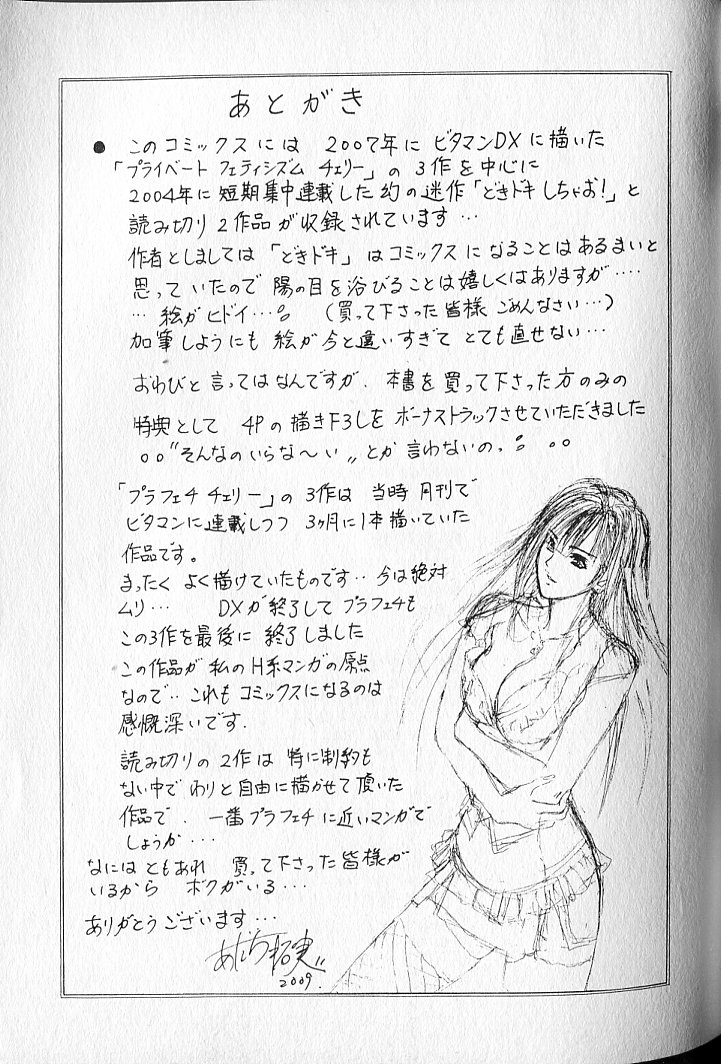 あとがき
● このコミックスには 2007年に ビタマンDXに描いた
「プライベート フェティシズム チェリー」の 3作を中心に
2004年に短期集中連載した幻の迷作「どきドキしちゃお!」と
読み切り2作品が収録されています…
作者としましては「どきドキ」はコミックスになることはあるまいと
思っていたので陽の目を浴びることは嬉しくはありますが‥‥
… 絵がヒドイ… (買って下さった皆様 ごめんなさい…)
加筆しようにも 絵が今と違いすぎて とても直せない…
おわびと言ってはなんですが、本書を買って下さった方のみの
特典として 4Pの描き下ろしをボーナストラックさせていただきました
。。"そんなのいらな〜い" とか 言わないの。
「プラフェチ チェリー」の 3作は 当時 月刊で
ビタマンに連載しつつ 3ヶ月に1本描いていた
作品です。
まったく よく描けていたものです‥ 今は絶対
ムリ… DXが終了して プラフェチも
この3作を最後に 終了しました
この作品が私のH系マンガの原点
なので‥ これもコミックスになるのは
感慨深いです.
読み切りの2作は 特に制約も
ない中で わりと自由に描かせて頂いた
作品で、一番プラフェチに近いマンガで
しょうか…
なにはともあれ 買って下さった皆様が
いるから ボクがいる…
ありがとうございます…
2009.